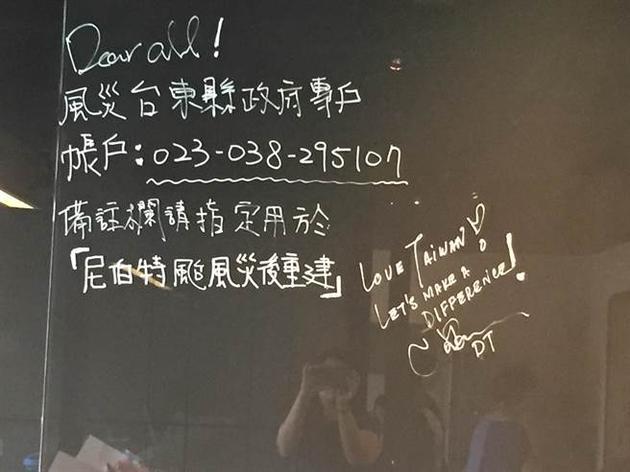 Dear all!
風災台東縣政府專戶
帳戶:023-038-295107
備註欄請指定用於
「尼伯特颱風災後重建」
LOVE TAIWAN
LET'S MAKE A
DIFFERENCE!
DT